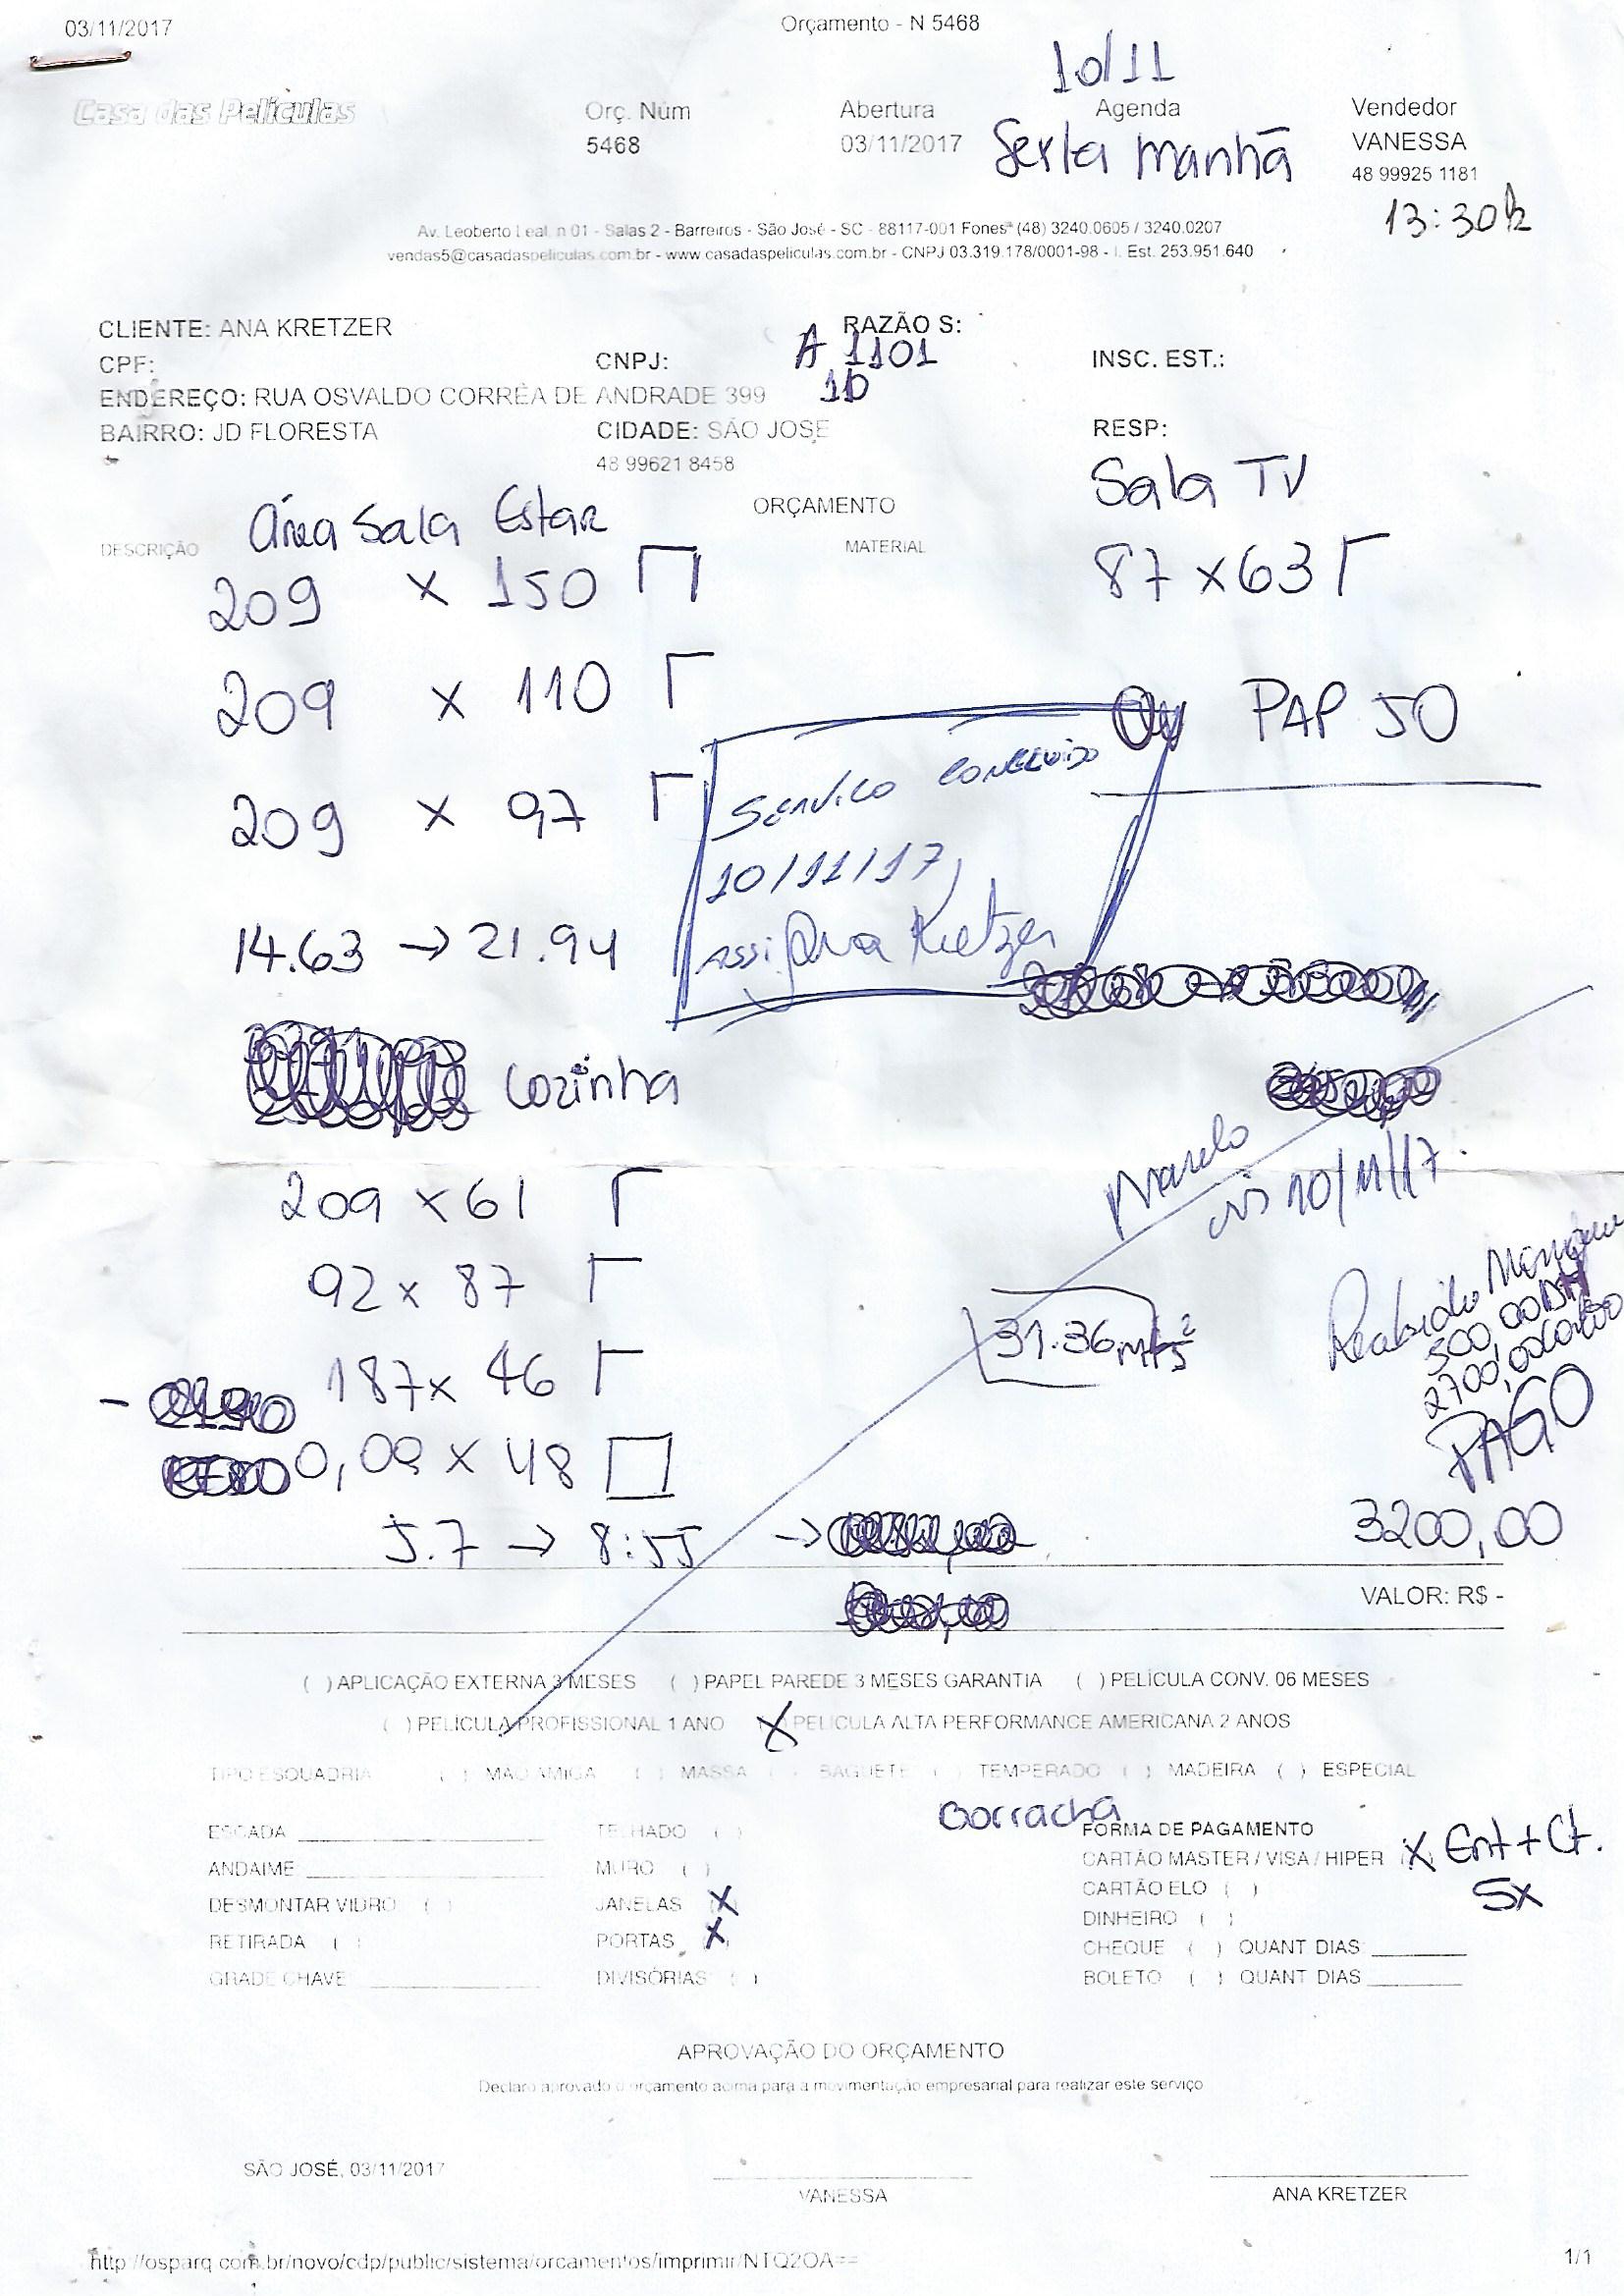 03/11/2017
Orçamento - N 5468
10/11
Casa das Películas
Orç. Núm
Abertura
Agenda
Vendedor
5468
03/11/2017
Sexta manhã
VANESSA
48 99925 1181
13:30h
Av. Leoberto Leal, n 01 - Salas 2 - Barreiros - São José - SC - 88117-001 Fones* (48) 3240.0605 / 3240.0207
vendas5@casadaspeliculas.com.br - www.casadaspeliculas.com.br - CNPJ 03.319.178/0001-98 - I. Est. 253.951.640
CLIENTE: ANA KRETZER
RAZÃO S:
CPF:
CNPJ:
A 1101
INSC. EST.:
ENDEREÇO: RUA OSVALDO CORRÊA DE ANDRADE 399
BAIRRO: JD FLORESTA
CIDADE: SÃO JOSE
RESP:
48 99621 8458
Área Sala Estar
ORÇAMENTO
Sala TV
DESCRIÇÃO
MATERIAL
209 x 150
87 x 63
209 x 110
PAP 50
209 x 97
Serviço concluido
10/11/17
Ass: Ana Kretzer
14.63 → 21.94
Cozinha
209 x 61
10/11/17.
92 x 87
31.36
187 x 46
500,00
2700,00
PAGO
0,09 x 48
5.7 → 8:55 →
3200,00
VALOR: R$ -
( ) APLICAÇÃO EXTERNA 3 MESES ( ) PAPEL PAREDE 3 MESES GARANTIA ( ) PELÍCULA CONV. 06 MESES
( ) PELÍCULA PROFISSIONAL 1 ANO (X) PELÍCULA ALTA PERFORMANCE AMERICANA 2 ANOS
TIPO ESQUADRIA ( ) MAO AMIGA ( ) MASSA ( ) BAGUETE ( ) TEMPERADO ( ) MADEIRA ( ) ESPECIAL
Borracha
ESCADA
TELHADO ( )
FORMA DE PAGAMENTO
ANDAIME:
MURO ( )
CARTÃO MASTER / VISA / HIPER (X) Ent + Ct.
DESMONTAR VIDRO ( )
JANELAS (X)
CARTÃO ELO ( )
5x
RETIRADA ( )
PORTAS (X)
DINHEIRO ( )
CHEQUE ( ) QUANT DIAS:
GRADE CHAVE
DIVISÓRIAS ( )
BOLETO ( ) QUANT DIAS
APROVAÇÃO DO ORÇAMENTO
Declaro aprovado o orçamento acima para a movimentação empresarial para realizar este serviço
SÃO JOSÉ, 03/11/2017
VANESSA
ANA KRETZER
http://osparq.com.br/novo/cdp/public/sistema/orcamentos/imprimir/NTQ2OA==
1/1